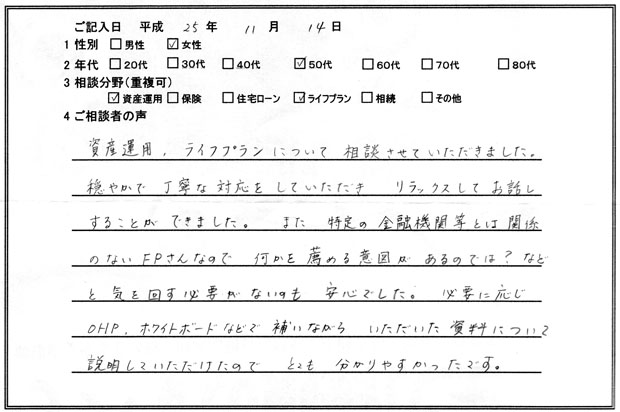 ご記入日 平成 25年 11月 14日
1 性別 □男性 ☑女性
2 年代 □20代 □30代 □40代 ☑50代 □60代 □70代 □80代
3 相談分野(重複可)
☑資産運用 □保険 □住宅ローン ☑ライフプラン □相続 □その他
4 ご相談者の声
資産運用、ライフプランについて 相談させていただきました。
穏やかで 丁寧な対応をしていただき リラックスしてお話し
することができました。 また 特定の金融機関等とは関係
のないFPさんなので 何かを薦める意図があるのでは?などと
と気を回す必要がないのも 安心でした。 必要に応じ
OHP、ホワイトボードなどで補いながら いただいた資料について
説明していただけたので とても 分かりやすかったです。